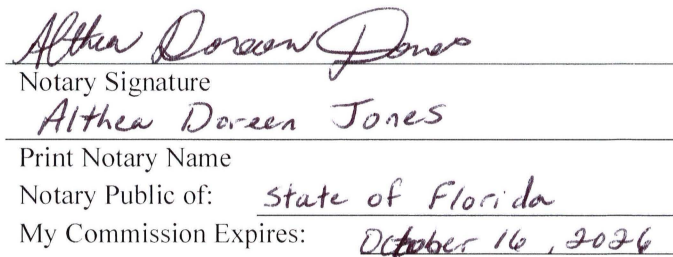 Althea Doreen Jones
Notary Signature
Althea Doreen Jones
Print Notary Name
Notary Public of: State of Florida
My Commission Expires: October 16, 2026